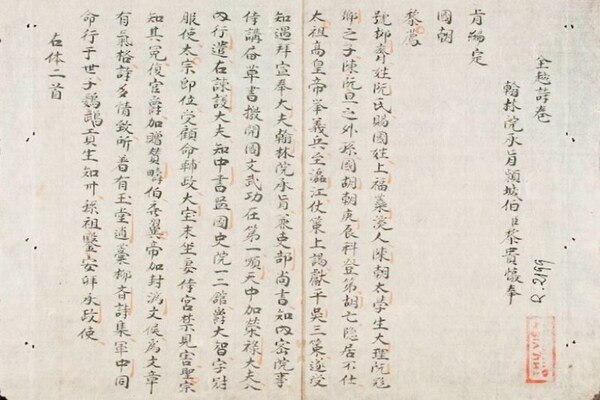 全越詩卷
翰林院承旨頴城伯臣黎貴惇奉
旨編定
國朝
黎廌
號抑齋姓阮氏賜國姓上福蘂溪人陳朝太學生大理院飛
卿之子陳阮旦之外孫國胡朝庚辰科登第胡亡隱居不仕
太祖高皇帝举義兵至瀘江仗策上謁獻平吳三策遂受
知遇拜宣奉大夫翰林院承旨兼吏部尚書知内密院事
侍講啓草書檄開國文武功在第一順天中加榮禄大夫入
内行遣右諫議大夫知中書監國史院一三館爵大智字冠
服使太宗即位受顧命輔政大宝末坐妾侍宮禁見害聖宗
知其冤復官爵加贈賛疇伯至翼帝加封濟文侯爲文章
有氣格詩多情致所著有玉堂遺藁抑斉詩集軍中詞
命行于世子鸚鵡貢生知州孫祖鑒安邦承政使
右体二首
R.2199